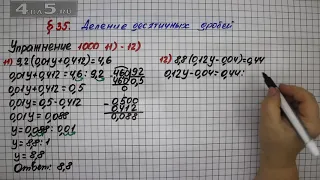 4RAS.RU
§ 35. Деление десятичных дробей
Упражнение 1000 11) - 12)
11) 9,2(0,01y+0,412)=4,6
0,01y+0,412=4,6:9,2
0,01y+0,412=0,5
0,01y=0,5-0,412
0,01y=0,088
y=0,088:0,01
y=8,8:1
y=8,8
Ответ: 8,8
46,0|92
460|0,5
0
-0,500
0,412
0,088
12) 8,8(0,12y-0,04)=0,44
0,12y-0,04=0,44: